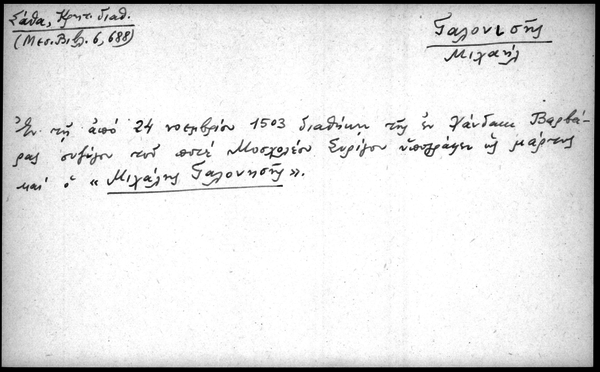 Σάθα, Κρητ. διαθ.
(Μεσ. Βιβλ. 6, 688)
Γαλονισῆς
Μιχαήλ
Ἐν τῇ ἀπό 24 νοεμβρίου 1503 διαθήκῃ τῆς ἐν Χάνδακι Βαρβά-
ρας συζύγου τοῦ ποτέ Μοσχολέου Συρίγου ὑπογράφει ὡς μάρτυς
καί ὁ « Μιχάλης Γαλονησῆς ».